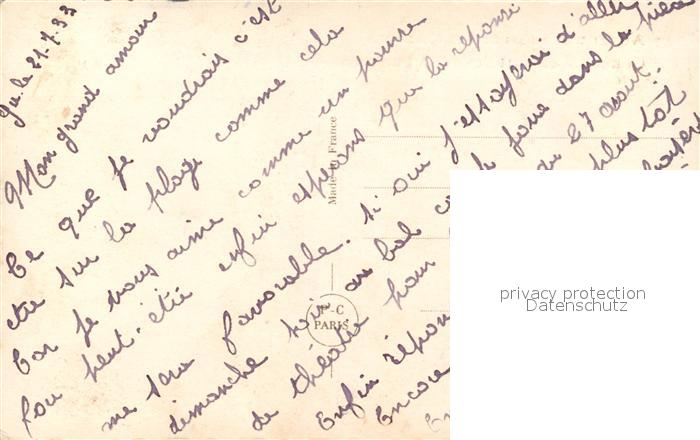 le 21.7.33
Mon grand amour
Ce que je voudrais c'est
être sur la plage comme cela
Car je vous aime comme un pauvre
fou peut-être enfin espérons que la réponse
me sera favorable. Si oui j'essayerai d'aller
dimanche soir au bal la pièce
de théatre pour 27 août.
Enfin plus tôt
Encore
Made in France
P-C
PARIS
privacy protection
Datenschutz